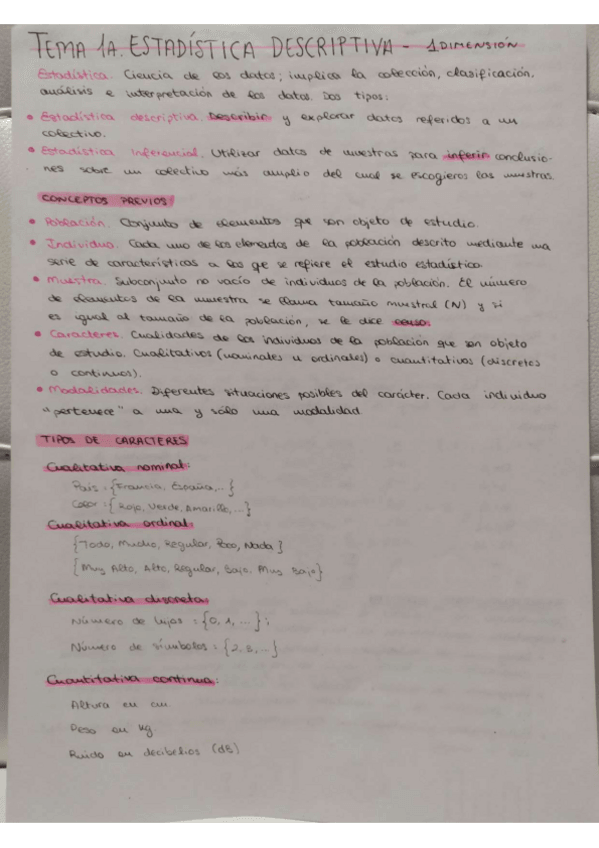 TEMA 1A. ESTADÍSTICA DESCRIPTIVA - 1 DIMENSIÓN
Estadística. Ciencia de los datos; implica la colección, clasificación,
análisis e interpretación de los datos. Dos tipos:
• Estadística descriptiva. Describir y explorar datos referidos a un
colectivo.
• Estadística Inferencial. Utilizar datos de muestras para inferir conclusio-
nes sobre un colectivo más amplio del cual se escogieros las muestras.
CONCEPTOS PREVIOS
• Población. Conjunto de elementos que son objeto de estudio.
• Individuo. Cada uno de los elemedos de la población descrito mediante una
serie de características a las que se refiere el estudio estadístico.
• Muestra. Subconjunto no vacío de individuos de la población. El número
de elementos de la muestra se llama tamaño muestral (N) y si
es igual al tamaño de la población, se le dice censo.
• Caracteres. Cualidades de los individuos de la población que son objeto
de estudio. Cualitativos (nominales u ordinales) o cuantitativos (discretos
o continuos).
• Modalidades. Diferentes situaciones posibles del carácter. Cada individuo
"pertenece" a una y sólo una modalidad.
TIPOS DE CARACTERES
Cualitativa nominal:
País : {Francia, España,...}
Color : {Rojo, Verde, Amarillo,...}
Cualitativa ordinal
{Todo, Mucho, Regular, Poco, Nada}
{Muy Alto, Alto, Regular, Bajo, Muy Bajo}
Cualitativa discreta:
Número de hijos : {0, 1, ...} ;
Número de símbolos : {2, 8, ...}
Cuantitativa continua:
Altura en cm.
Peso en kg.
Ruido en decibelios (dB)